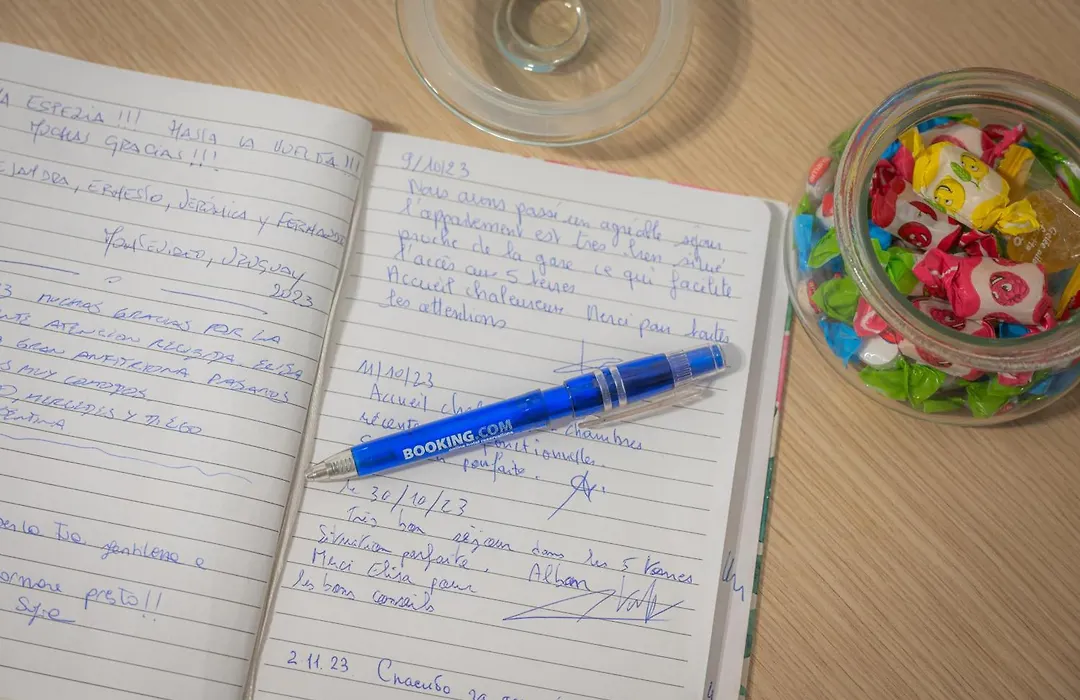 A ESPEZIA !!! HASTA LA VUELTA !!!
MUCHAS GRACIAS !!!
ERNESTO, VERÓNICA Y FERNANDO
MONTEVIDEO, URUGUAY
2023
MUCHAS GRACIAS POR LA
ATENCION RECIBIDA. ELISA
GRAN ANFITRIONA. PASAMOS
MUY COMODOS
MERCEDES Y DIEGO
presto!!
9/10/23
Nous avons passé un agréable séjour
l'appartement est très bien situé
proche de la gare ce qui facilite
l'accès aux 5 terres
Accueil chaleureux Merci pour toutes
les attentions
11/10/23
Accueil
chambres
fonctionnelles.
parfaite.
BOOKING.COM
le 30/10/23
Très bon séjour dans les 5 Terres
Situation parfaite. Alban
Merci Elisa pour
les bons conseils
2.11.23 Спасибо за